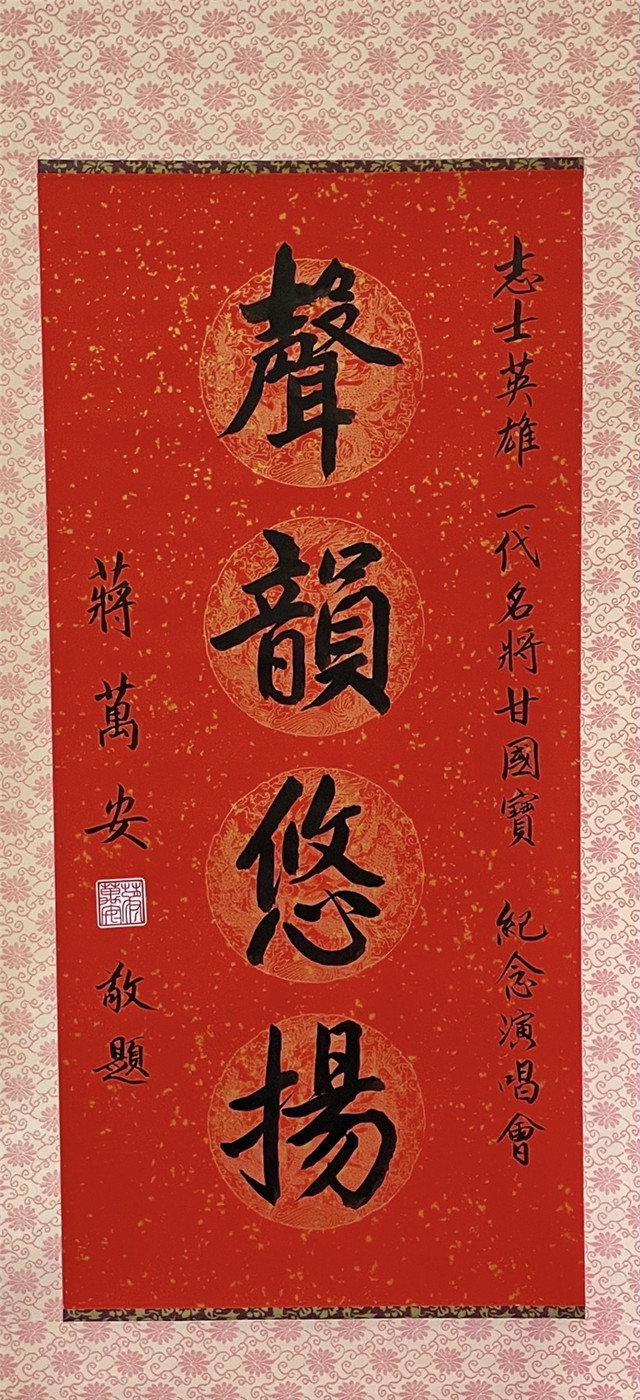 志士英雄 一代名將甘國寶 紀念演唱會
聲韻悠揚
蔣萬安 敬題
蔣萬安